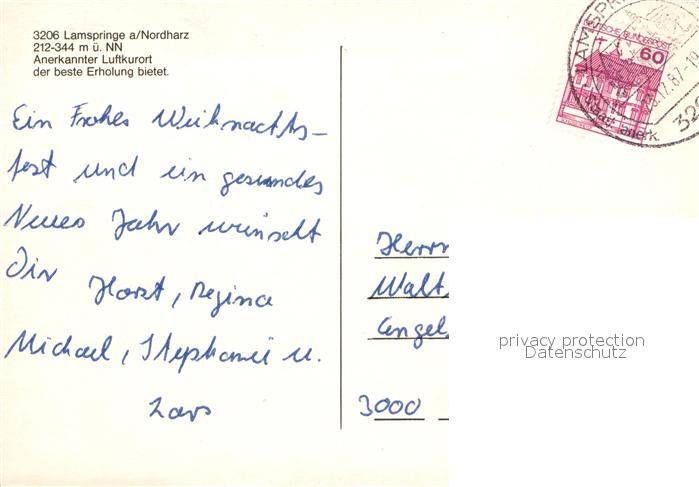 3206 Lamspringe a/Nordharz
212-344 m ü. NN
Anerkannter Luftkurort
der beste Erholung bietet.
Ein Frohes Weihnachts-
fest und ein gesundes
Neues Jahr wünscht
Dir Horst, Regina
Michael, Stephanie u.
Lars
DEUTSCHE BUNDESPOST
60
LAMSPR
.12.87-10
anerk.
320
Herrn
Walt
Engel
3000
privacy protection
Datenschutz